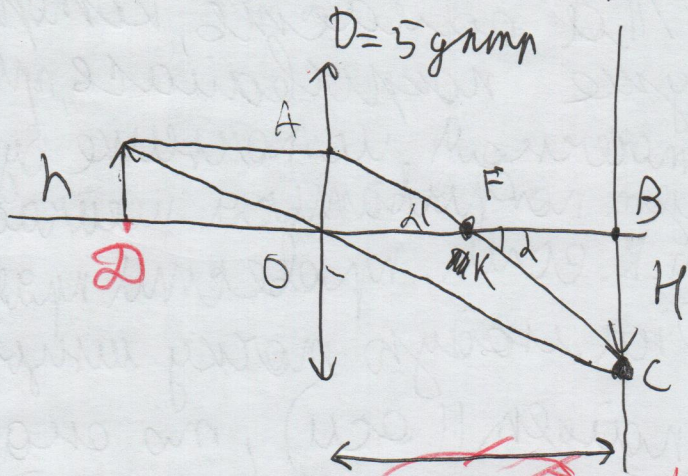 D = 5 дптр
A
h
F
α
α
B
D
O
K
H
C